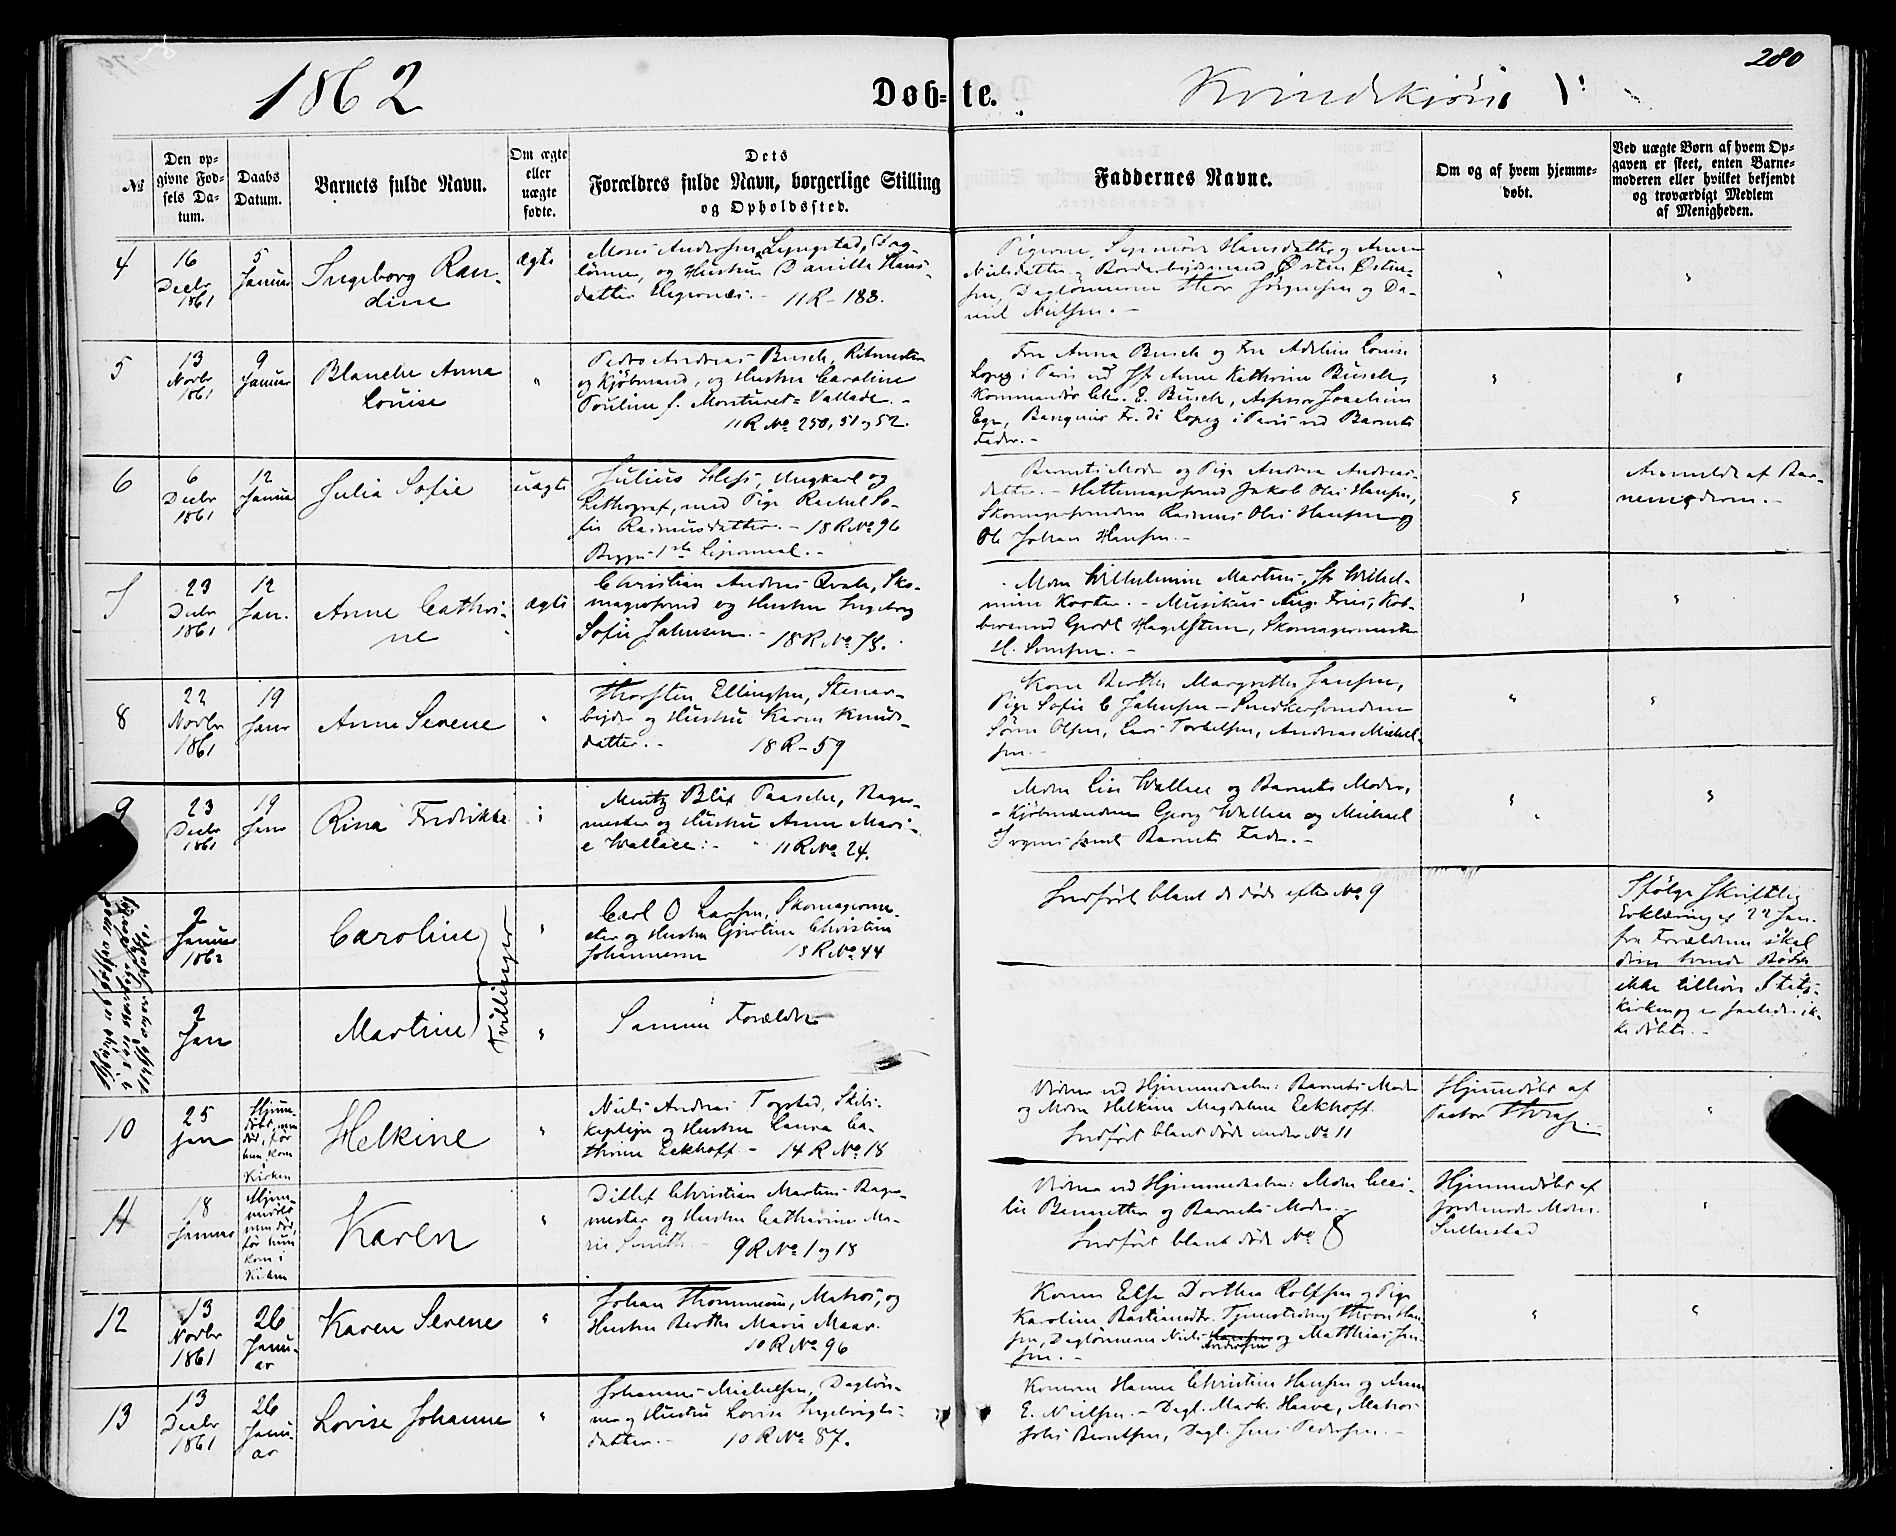 280
1862
Døb-te.
Kvindekjön
№
Den op-
givne Fød-
sels Da-
tum.
Daabs
Datum.
Barnets fulde Navn.
Om ægte
eller
uægte
fødte.
Dets
Forældres fulde Navn, borgerlige Stilling
og Opholdssted.
Faddernes Navne.
Om og af hvem hjemme-
døbt.
Ved uægte Børn af hvem Op-
gaven er skeet, enten Barne-
moderen eller hvilket bekjendt
og troværdigt Medlem
af Menigheden.
4
16
Decbr
1861
5
Januar
Ingeborg Ran-
dine
ægte
Mons Andersen Lyngstad, Dag-
lönner, og Hustru Danille Hans-
datter 11 R - 188.
Pigerne Hansdatter og Anne
Nielsdatter - Östen Östen-
sen, Daglönnerne Thor og Da-
niel Nielsen. -
5
13
Novbr
1861
9
Januar
Blanche Anna
Louise
"
Pedro Andreas Busch, Ritmester
og Kjöbmand, og Hustru Caroline
Pouline f. Vallade. -
11 R № 250, 51 og 52.
Fru Anna Busch og Fru Adeline Louise
Lopez i Paris ved Jfr Anne Kathrine Busch,
Kommandör Chr. E. Busch, Assessor Joachim
Ege, Banquier Fr. di Lopez i Paris ved Barnets
Fader. -
6
6
Decbr
1861
12
Januar
Julia Sofie
uægte
Julius Hess, Ungkarl og
Lithograf, med Pige Rachel So-
fie Rasmusdatter. - 18 R № 96
Begges 1ste Leiermaal. -
Barnets Moder og Pige Andrea Andreas-
datter. - Hattemagersvend Jakob Olai Hansen,
Skomagersvendene Rasmus Olai Hansen og
Ole Johan Hansen. -
Anmeldt af Bar-
nemoderen. -
7
23
Decbr
1861
12
Jan.
Anne Cathri-
ne
ægte
Christian Andreas Qvale, Sko-
magersvend og Hustru Ingeborg
Sofie Johnsen. - 18 R № 78.
Mdm Wilhelmine Martens, Jfr Wilhel-
mine Koster. - Musikus Aug. Fries, Kob-
bersmed Gerdt Hagelsteen, Skomagermester
8
22
Novbr
1861
19
Janr
Anne Serene
"
Thorsten Ellingsen, Stenar-
bejder og Hustru Karen Knuds-
datter. - 18 R - 59
Kone Berthe Margrethe Jansen,
Pige Sofie C Johnsen - Snedkersvendene
Sörén Olsen, Lars Torkelsen, Andreas Michel-
sen. -
9
23
Decbr
1861
19
Janr
Rina Fredrikke
Mentz Blix Paasche, Bager-
mester og Hustru Anne Mari-
e Wallace. - 11 R № 24.
Mdm Lise Wallace og Barnets Moder,
- Kjöbmændene Georg Wallace og Michael
Irgens samt Barnets Fader. -
2
Januar
1862
Caroline
Tvillinger
"
Carl O Larsen, Skomagerme-
ster og Hustru Gjertine Christine
Johannesen 13 R № 44
Indfört blant de döde efter № 9
Ifölge Skriftlig
Erklæring af 22 Jan.
fra Forældrene skal
ikke tilhöre Stats-
kirken og er saaledes ik-
ke döbte. -
2
Jan
Martine
"
Samme Forældre
10
25
Jan
Hjem-
döbt, men
död, för
hun kom
i
Kirken
Helkine
"
Niels Andreas Togstad, Skibs-
kaptejn og Hustru Laura Ca-
thrine Eckhoff - 14 R № 18
Vidner ved Hjemmedaaben: Barnets Moder
og Mdm Helkine Magdalena Eckhoff.
Indfört blant döde under № 11
Hjemmedöbt af
Pastor
11
18
Januar
Hjem-
medöbt
men död,
för hun
kom i
Kirken
Karen
"
Ditlef Christian Martens Bager-
mester og Hustru Catharina Ma-
rie Smith. - 9 R № 1 og 18
Vidner ved Hjemmedaaben: Mdm Ceci-
lie Bennetter og Barnets Moder. -
Indfört blant döde № 8
Hjemmedöbt af
Jordemoder Mdm.
12
13
Novbr
1861
26
Janu-
ar
Karen Serene
"
Johan Thommesen, Matros, og
Hustru Berthe Marie Maar.
10 R № 96
Konen Else Dorthea Rolfsen og Pige
Karoline Bastiansdtr. Tjenestedreng Thron Han-
sen, Daglönnerne Niels Hansen Andersen og Matthias Jen-
sen. -
13
13
Decbr
1861
26
Janu-
ar
Lovise Johanne
"
Johannes Michelsen, Daglön-
ner og Hustru Lovise Ingebrigts-
datter. - 10 R № 87.
Konerne Hanne Christine Hansen og Anne
E. Nielsen. - Dagl. Mark. Haave, Matros
Johs Berntsen, Dagl. Jens Pedersen. -